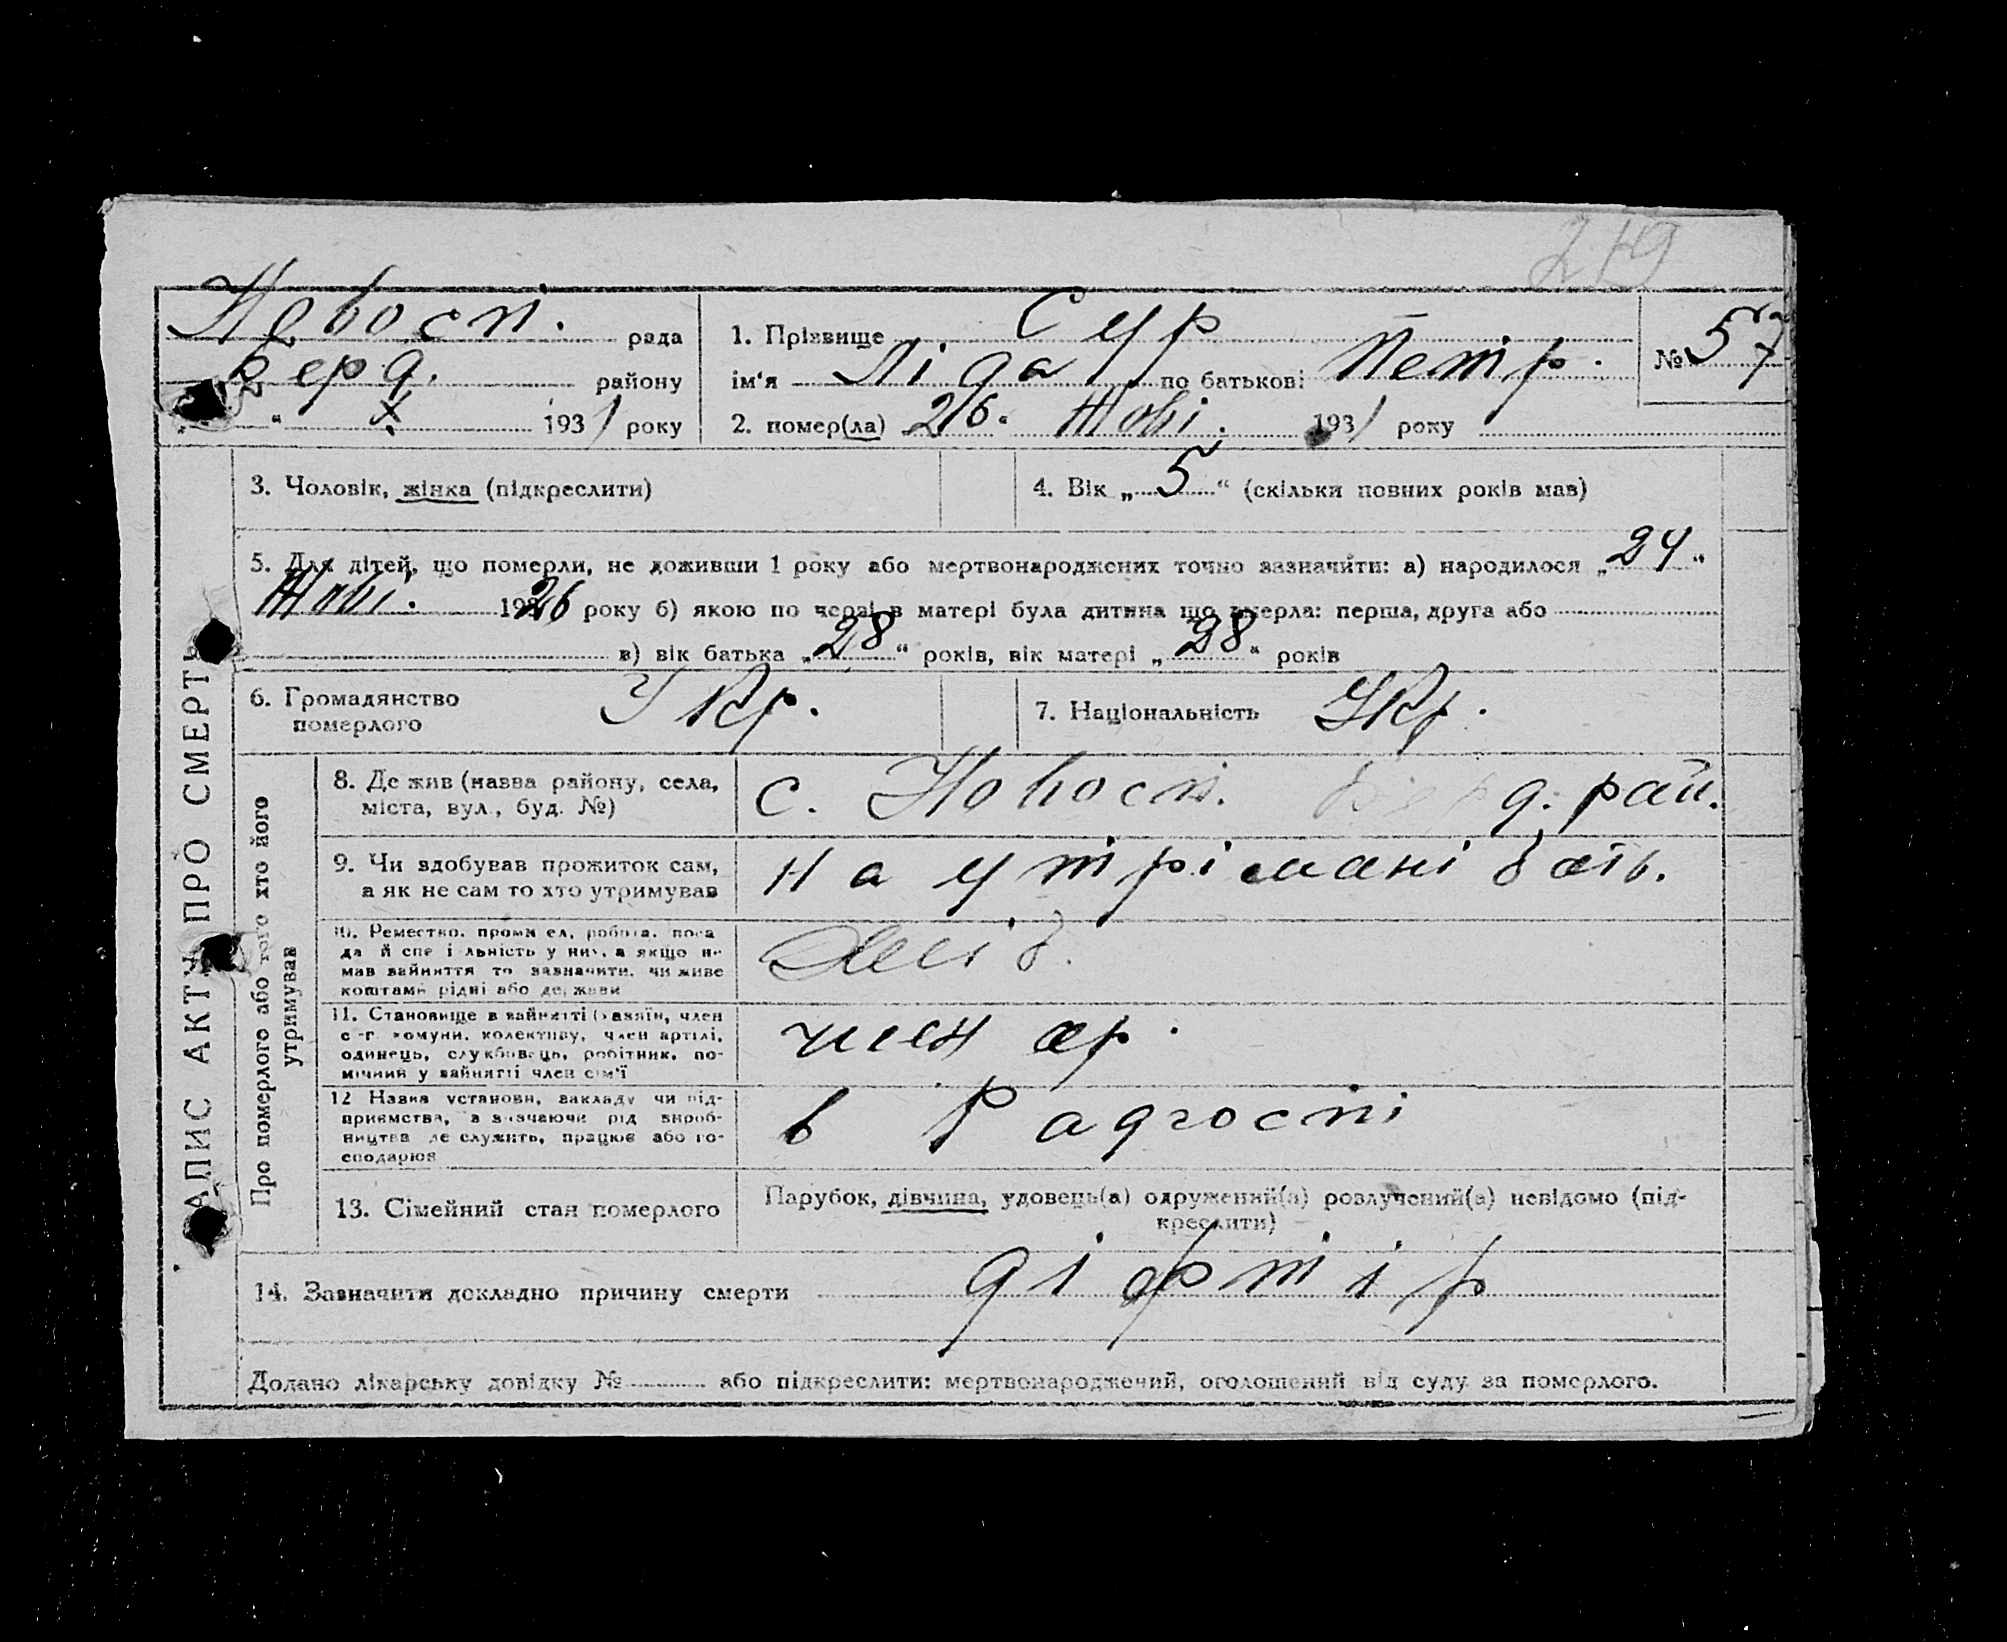 219
Новосп. рада
Берд. району
“ X 1931 року
1. Прізвище Сур
ім'я Ліда по батькові Петр.
№ 57
2. помер(ла) 26. Жовт. 1931 року
3. Чоловік, жінка (підкреслити)
4. Вік „ 5 “ (скільки повних років мав)
5. Для дітей, що померли, не доживши 1 року або мертвонароджених точно зазначити: а) народилося „ 24 “
Жовт. 1926 року б) якою по черзі в матері була дитина що вмерла: перша, друга або
в) вік батька „ 28 “ років, вік матері „ 28 “ років
6. Громадянство
померлого
Укр.
7. Національність Укр.
ЗАПИС АКТУ ПРО СМЕРТЬ
Про померлого або того хто його
утримував
8. Де жив (назва району, села,
міста, вул., буд. №)
с. Новосп. Берд. рай.
9. Чи здобував прожиток сам,
а як не сам то хто утримував
на утрімані бать.
10. Ремество, промисел, робота, поса
да й спеціяльність у них, а якщо не
мав зайняття то зазначити, чи живе
коштами рідні або держави
Хліб.
11. Становище в зайнятті (хазяїн, член
с-г. комуни, колективу, член артілі,
одинець, службовець, робітник, по-
мічний у зайнятті член сім'ї
член ар.
12 Назва установи, закладу чи під-
приємства, зазначаючи рід вироб-
ництва де служить, працює або го-
сподарює
в Радгоспі
13. Сімейний стан померлого
Парубок, дівчина, удовець(а) одружений(а) розлучений(а) невідомо (під-
креслити)
14. Зазначити докладно причину смерти діфтір
Додано лікарську довідку № або підкреслити: мертвонароджений, оголошений від суду за померлого.